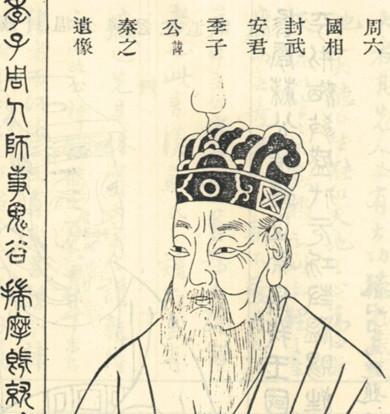 周六
國相
封武
安君
季子
公諱
秦之
遺像
季子周人師事鬼谷揣摩既就